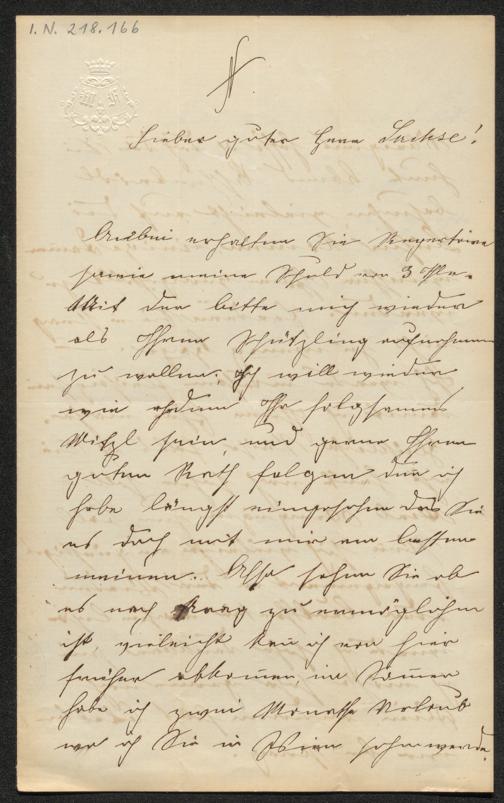 I. N. 218.166
Lieber guter Herr Sachse!
Anbei erhalten Sie Repertoire
sowie meine Schuld von 3
Mit der bitte mich wieder
als Ihren Schützling aufnehmen
zu wollen; ich will wieder
wie ehdem Ihr folgsames
sein, und gerne Ihren
guten Rath folgen den ich
habe längst eingesehen das Sie
es doch mit mir am besten
meinen. Also sehen Sie ob
es nach Prag zu ermöglichen
ist, vieleicht kan ich von hier
früher abkomen, im Somer
habe ich zwei Monathe Urlaub
wo ich Sie in Wien sehen werde.